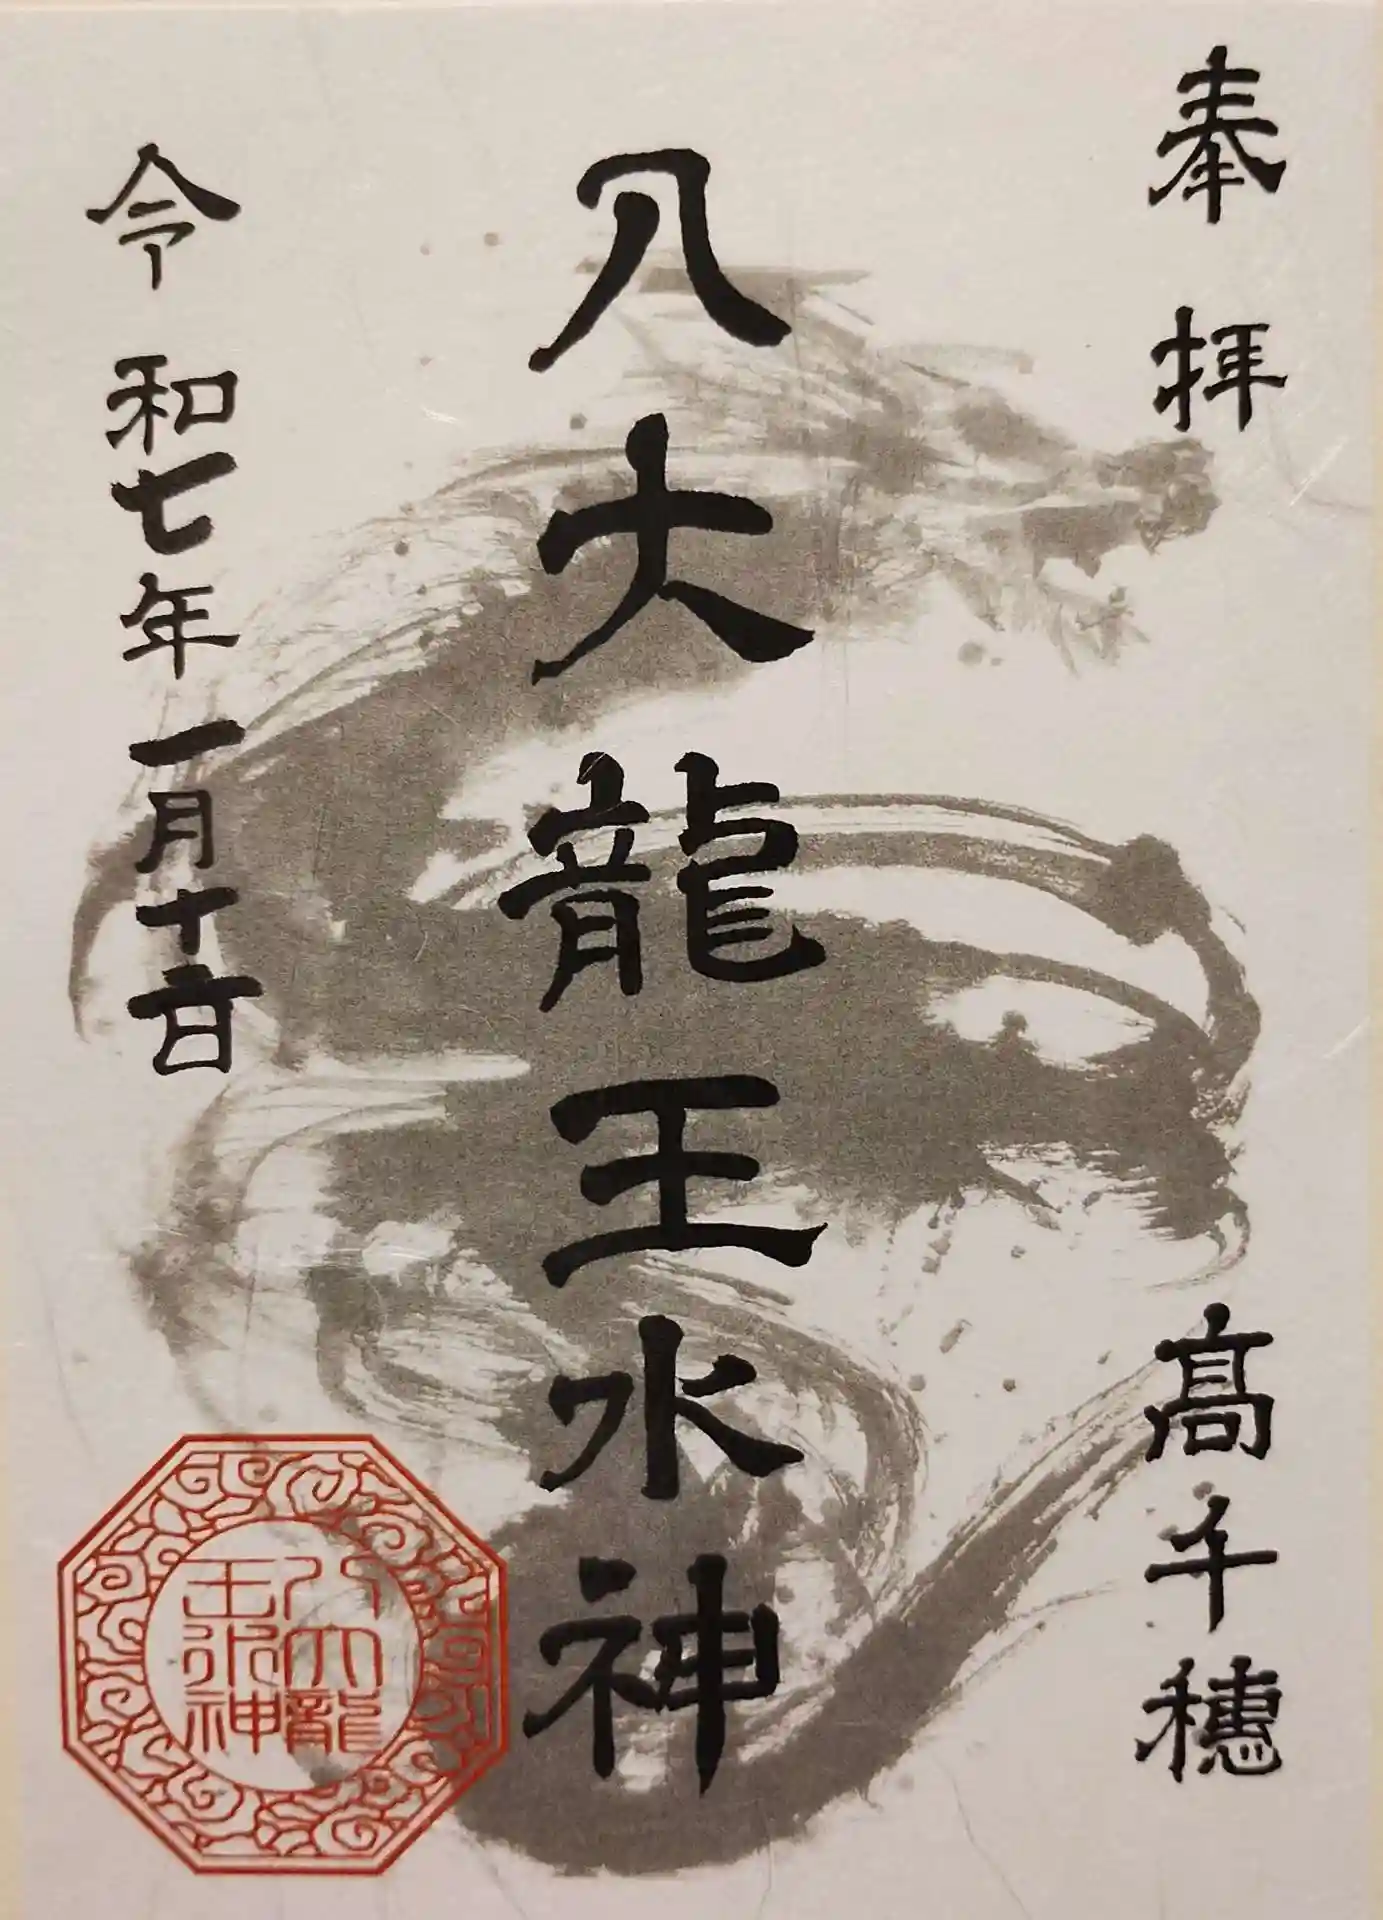 奉拝 髙千穂
八大龍王水神
令和七年一月十六日
八大龍
王水神